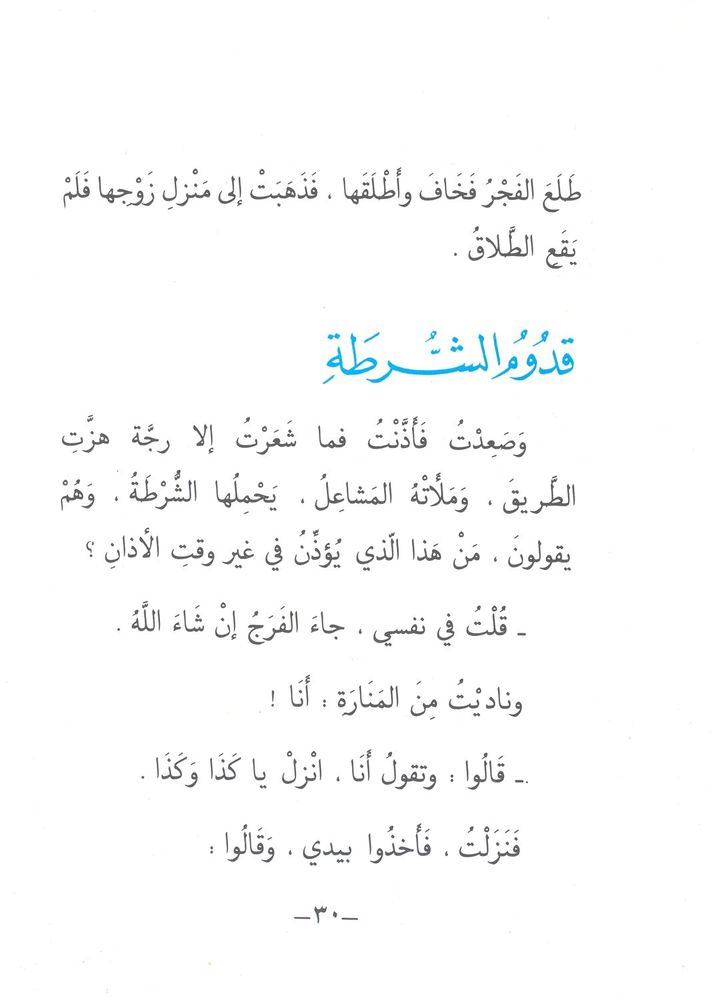 طَلَعَ الفَجْرُ فَخَافَ وأَطْلَقَها ، فَذَهَبَتْ إلى مَنْزِلِ زَوْجِها فَلَمْ
يَقَعِ الطَّلاقُ .
قدُوُم الشُّرطَةِ
وَصَعِدْتُ فَأَذَّنْتُ فما شَعَرْتُ إلا رجَّة هزَّتِ
الطَّريقَ ، وَمَلَأَتْهُ المَشاعِلُ ، يَحْمِلُها الشُّرْطَةُ ، وَهُمْ
يقولونَ ، مَنْ هَذا الّذي يُؤذِّنُ في غير وقتِ الأذانِ ؟
ـ قُلْتُ في نفسي ، جاءَ الفَرَجُ إنْ شَاءَ اللَّهُ .
وناديْتُ مِنَ المَنَارَةِ : أَنَا !
ـ قَالُوا : وتقولُ أَنَا ، انْزِلْ يا كَذَا وَكَذَا .
فَنَزَلْتُ ، فَأَخذُوا بيدي ، وَقَالُوا :
–٣٠–